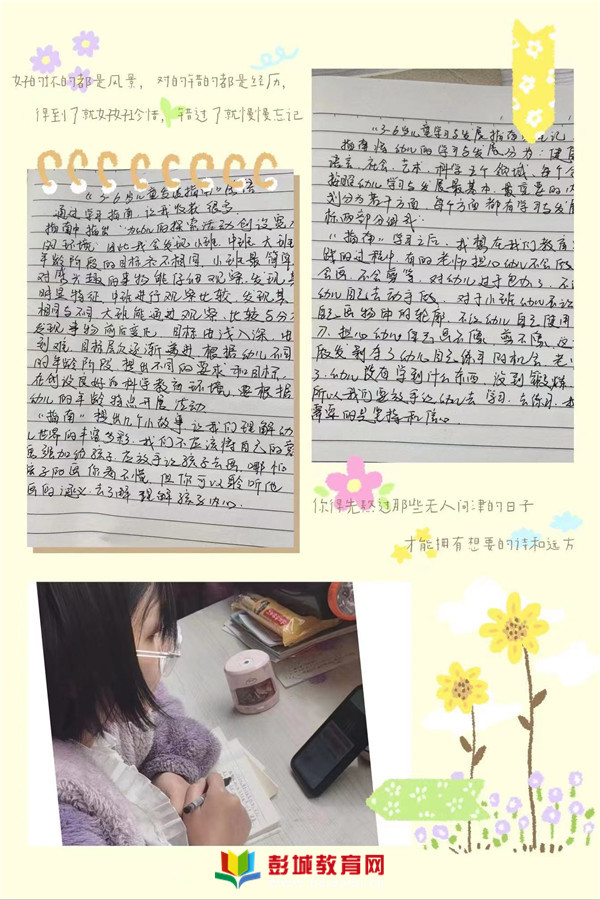 好的坏的都是风景，对的错的都是经历，
得到了就好好珍惜，错过了就慢慢忘记
通过学习指南，让我收获很多。
指南中指出：为幼儿的探究活动创设宽
的环境。因此我会发现小班 中班 大班
年龄阶段的目标亦不相同，小班最简单
对感兴趣的事物能仔细观察，发现其
明显特征，中班进行观察比较，发现其
相同与不同，大班能通过观察、比较与分
发现事物前后变化，目标由浅入深，由
到难，目标层次逐渐递进，根据幼儿不同
的年龄阶段，提出不同的要求和目标，
在创设良好的科学教育环境，要根据
幼儿的年龄特点开展活动
“指南”提出几个小故事让我们理解幼
儿世界的丰富多彩，我们不应该将自己的意
愿强加给孩子，应放手让孩子去画，哪怕
孩子的画你看不懂，但你可以聆听他
画的涵义，去了解 理解孩子内心。
《3-6岁儿童学习与发展指南》笔记
指南将幼儿的学习与发展分为：健康
语言、社会、艺术、科学五个领域，每个
按照幼儿学习与发展最基本、最重要的内
划分为若干方面，每个方面都有学习与发展
标两部分组成：
“指南”学习之后，我想在我们教育
践的过程中，有的老师担心幼儿不会做
会画，不会剪等，对幼儿过于包办了，不
幼儿自己去动手做，对于小班幼儿不让
自己画物中的轮廓，不让幼儿自己使用
刀，担心幼儿自己画不像，剪不像，这
幼儿没有学到什么东西，没到锻炼
所以我们要放手让幼儿去学习、去练习，
你得先熬过那些无人问津的日子
才能拥有想要的诗和远方
彭城教育网